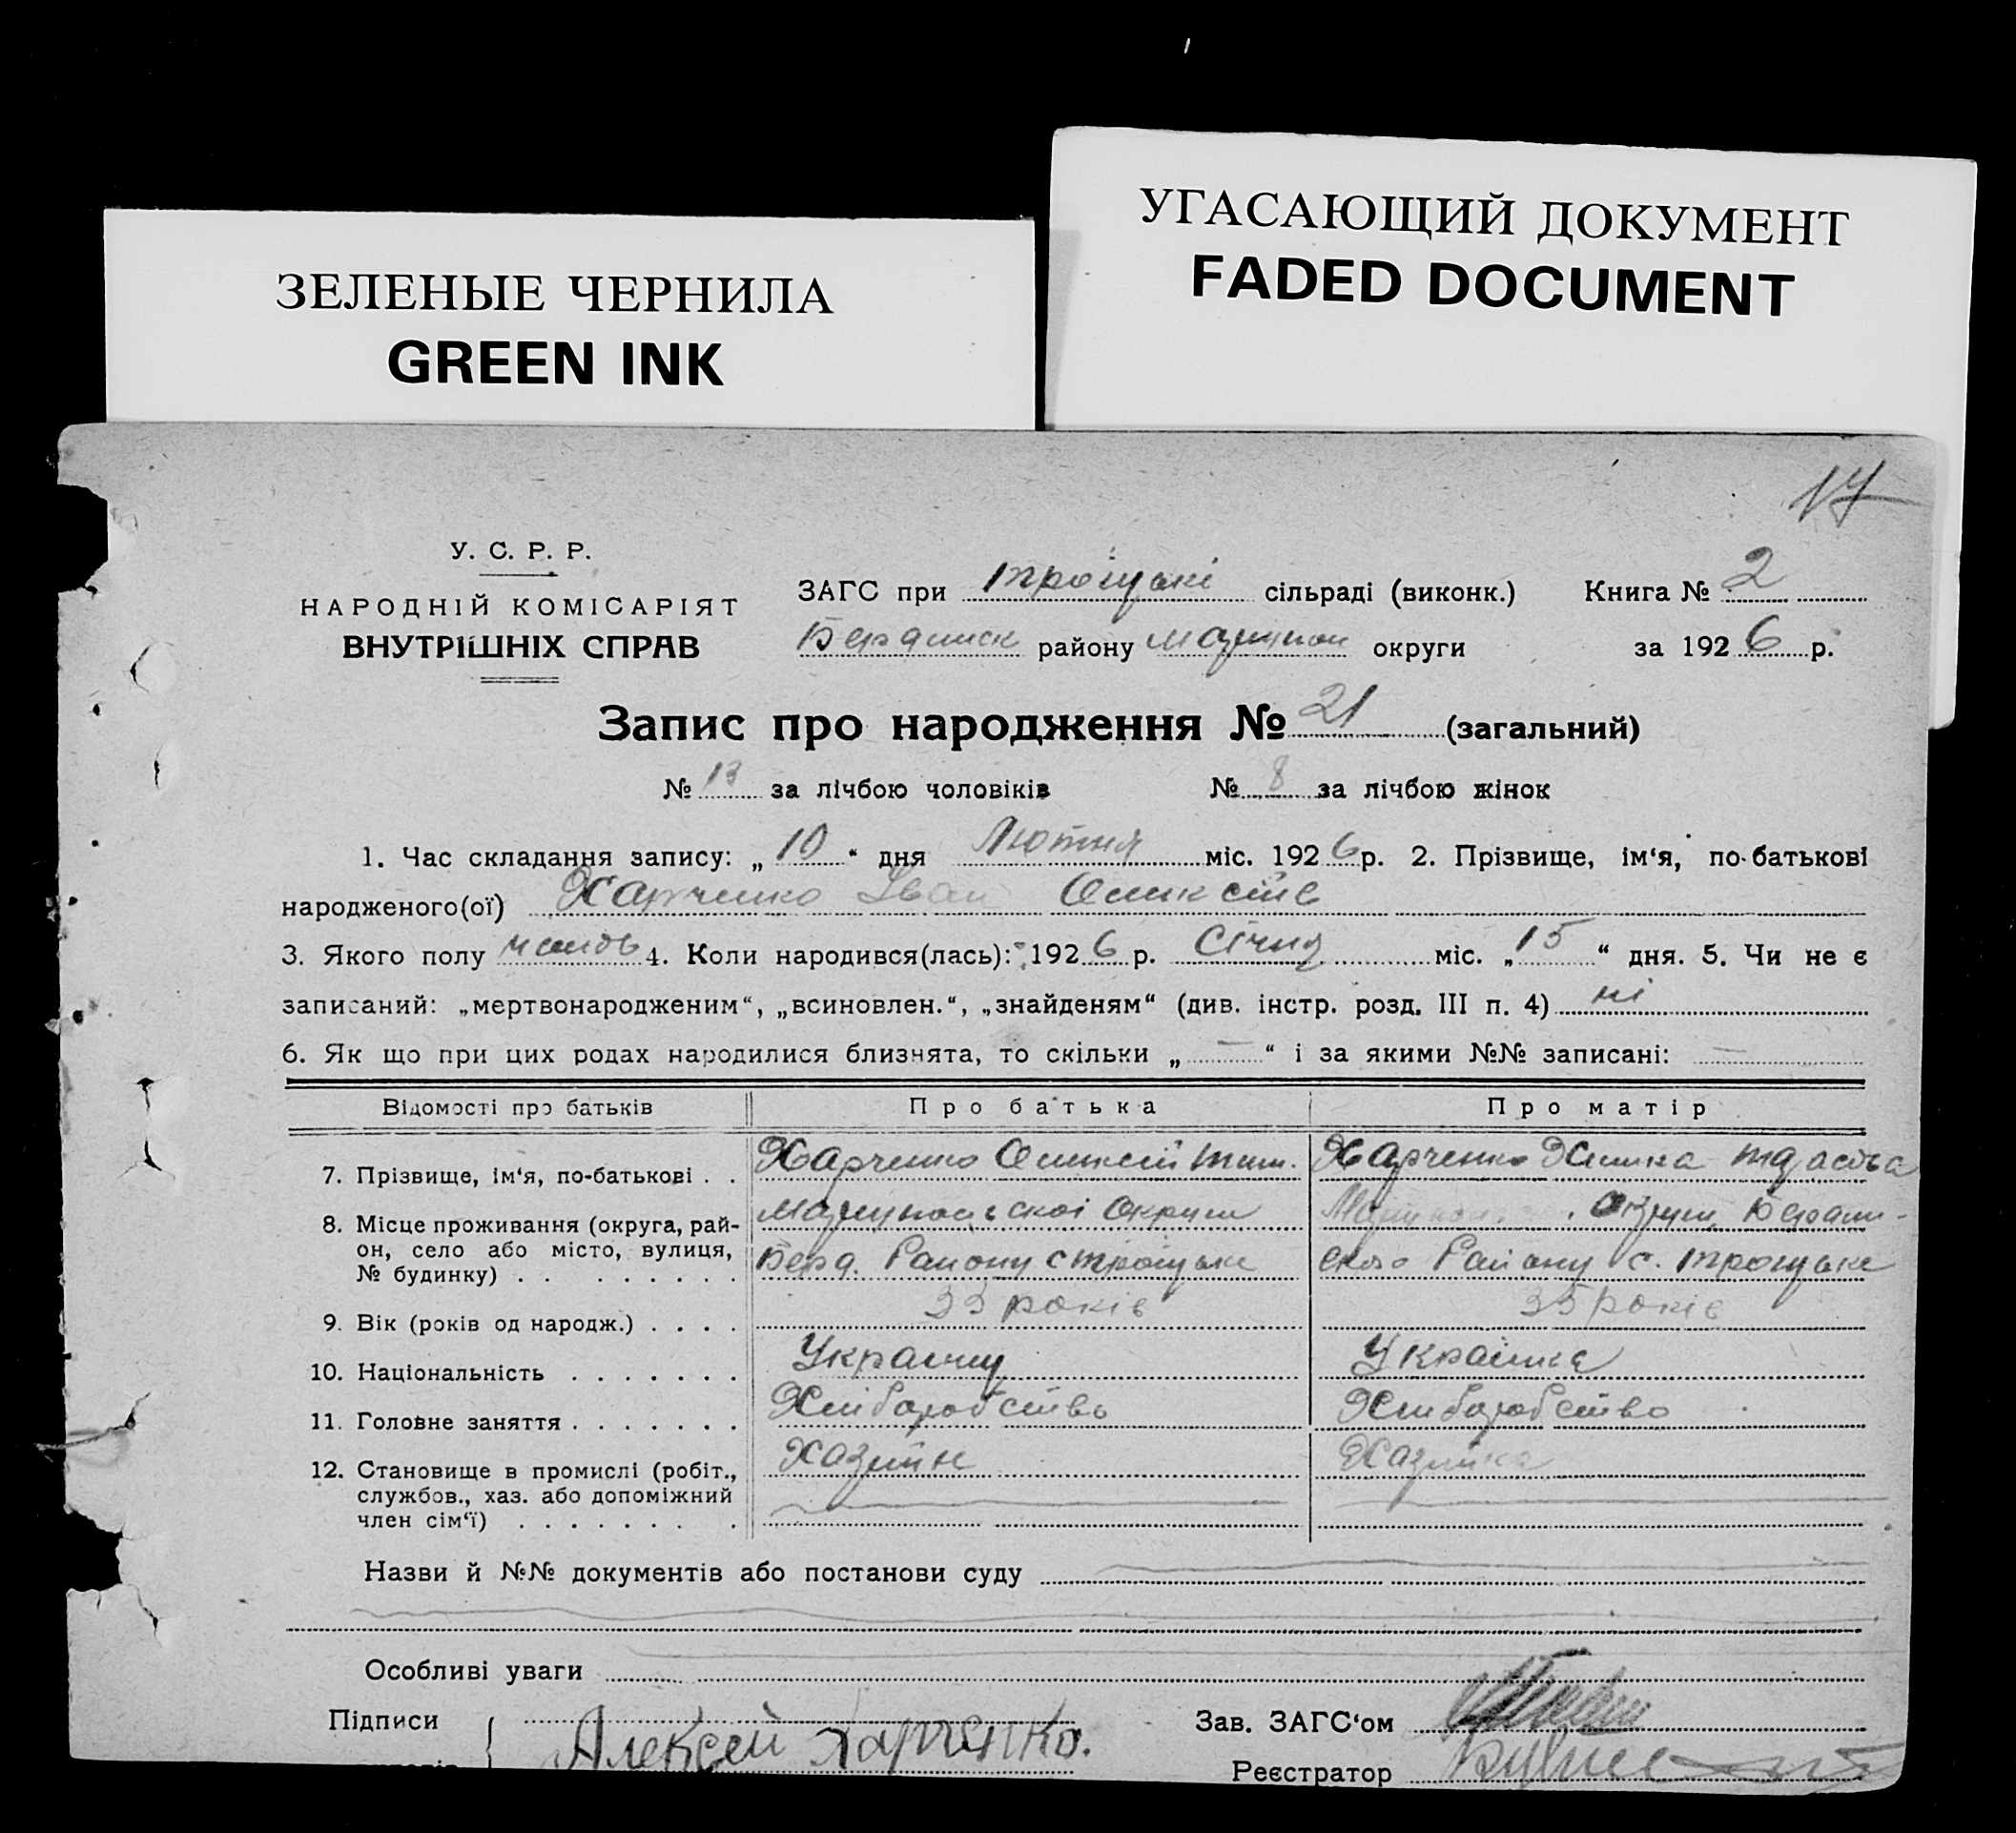 УГАСАЮЩИЙ ДОКУМЕНТ
FADED DOCUMENT
ЗЕЛЕНЫЕ ЧЕРНИЛА
GREEN INK
17
У. С. Р. Р.
НАРОДНІЙ КОМІСАРІЯТ
ВНУТРІШНІХ СПРАВ
ЗАГС при Троіцькі сільраді (виконк.) Книга № 2
Бердянск району Маріупол округи за 1926 р.
Запис про народження № 21 (загальний)
№ 13 за лічбою чоловіків № 8 за лічбою жінок
1. Час складання запису: „ 10 “ дня Лютня міс. 1926 р. 2. Прізвище, ім‘я, по-батькові
народженого(ої) Харченко Іван Олексіів
3. Якого полу 4. Коли народився(лась): 1926 р. Січня міс. „ 15 “ дня. 5. Чи не є
записаний: „мертвонародженим“, „всиновлен.“, „знайденям“ (див. інстр. розд. III п. 4) ні
6. Як що при цих родах народилися близнята, то скільки „ — “ і за якими №№ записані: —
Відомости про батьків Про батька Про матір
7. Прізвище, ім‘я, по-батькові . . Харченко Олексій Тим. Харченко
8. Місце проживання (округа, рай- Маріупольскоі Округи Округи Бердян-
он, село або місто, вулиця, Берд. Району с Троіцьке ского Району с. Троіцьке
№ будинку) . . . . . . . .
9. Вік (років од народж.) . . . . 33 років 35 років
10. Національність . . . . . . . Украінц Украінка
11. Головне заняття . . . . . . . Хліборобство Хліборобство
12. Становище в промислі (робіт., Хазяін Хазяйка
службов., хаз. або допоміжний
член сім‘ї) . . . . . . . .
Назви й №№ документів або постанови суду
Особливі уваги
Підписи Алексей Харченко. Зав. ЗАГС‘ом
Реєстратор